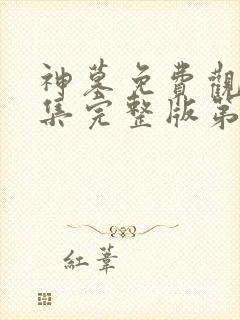 神墓免費觀
集完整版第
紅葦